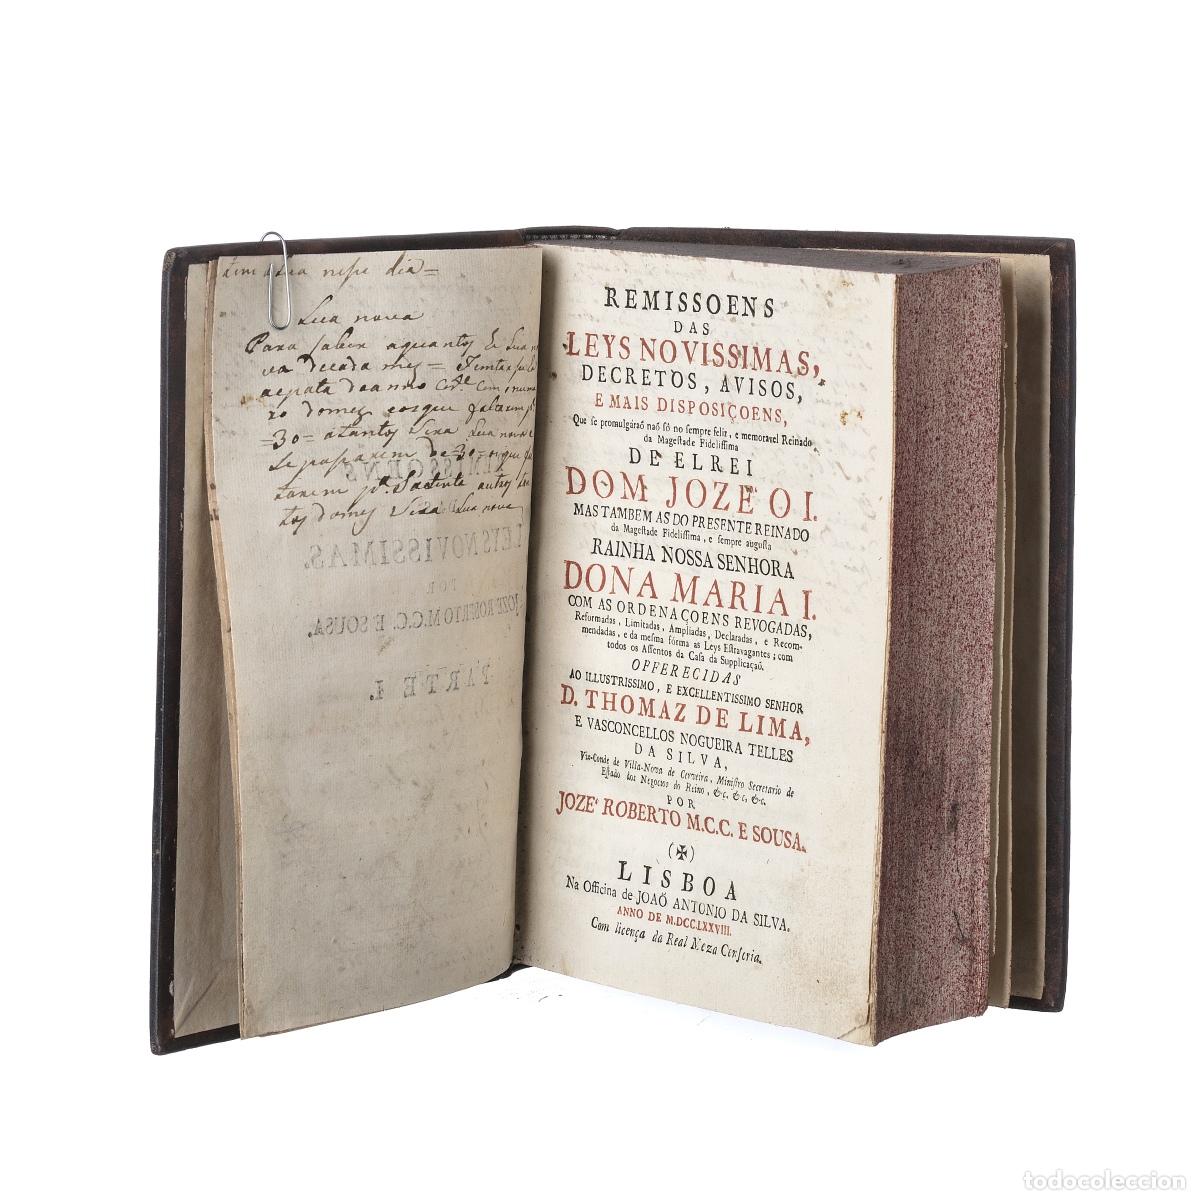 Lua nova
Para saber aquantos he Lua no
va de cada mes =
= 30 =
Lua nova
LEYS NOVISSIMAS.
POR
JOZE ROBERTO M.C.C. E SOUSA.
PARTE I.
REMISSOENS
DAS
LEYS NOVISSIMAS,
DECRETOS, AVISOS,
E MAIS DISPOSIÇOENS,
Que se promulgáraõ naõ só no sempre feliz, e memoravel Reinado
da Magestade Fidelissima
DE ELREI
DOM JOZE' O I.
MAS TAMBEM AS DO PRESENTE REINADO
da Magestade Fidelissima, e sempre augusta
RAINHA NOSSA SENHORA
DONA MARIA I.
COM AS ORDENAÇOENS REVOGADAS,
Reformadas, Limitadas, Ampliadas, Declaradas, e Recom-
mendadas, e da mesma fórma as Leys Estravagantes; com
todos os Assentos da Casa da Supplicaçaõ.
OFFERECIDAS
AO ILLUSTRISSIMO, E EXCELLENTISSIMO SENHOR
D. THOMAZ DE LIMA,
E VASCONCELLOS NOGUEIRA TELLES
DA SILVA,
Vis-Conde de Villa-Nova de Cerveira, Ministro Secretario de
Estado dos Negocios do Reino, &c. &c. &c.
POR
JOZE' ROBERTO M.C.C. E SOUSA.
(✠)
LISBOA
Na Officina de JOAÕ ANTONIO DA SILVA.
ANNO DE M.DCC.LXXVIII.
Com licença da Real Meza Censoria.
todocoleccion